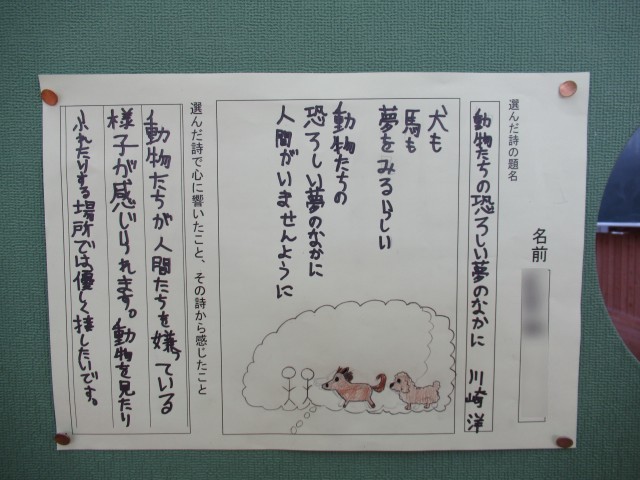 名前
選んだ詩の題名
動物たちの恐ろしい夢のなかに 川崎洋
犬も
馬も
夢をみるらしい
動物たちの
恐ろしい夢のなかに
人間がいませんように
選んだ詩で心に響いたこと、その詩から感じたこと
動物たちが人間たちを嫌っている
様子が感じられます。動物を見たり
ふれたりする場所では優しく接したいです。